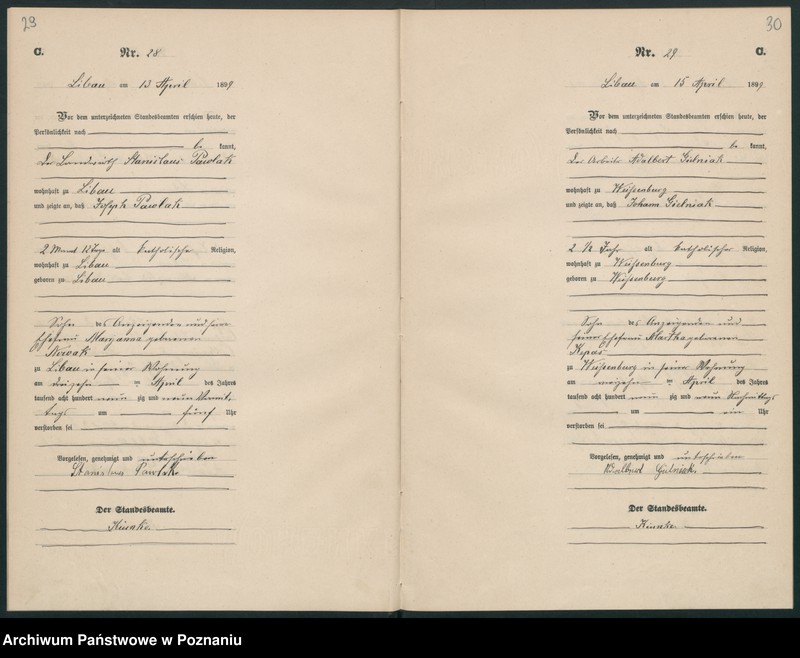 29
C.
Nr. 28
Libau am 13 April 1899
Vor dem unterzeichneten Standesbeamten erschien heute, der
Persönlichkeit nach
be kannt,
Der Landwirth Stanislaus Pawlak
wohnhaft zu Libau
und zeigte an, daß Joseph Pawlak
2 Monat 12 Tage alt katholischer Religion,
wohnhaft zu Libau
geboren zu Libau
Sohn des Anzeigenden und seiner
Ehefrau Maryanna geborenen
Nowak
zu Libau in seiner Wohnung
am dreizehn ten April des Jahres
tausend acht hundert neun zig und neun Vormit
tags um fünf Uhr
verstorben sei
Vorgelesen, genehmigt und unterschrieben
Stanislaus Pawlak
Der Standesbeamte.
30
C.
Nr. 29
Libau am 15 April 1899
Vor dem unterzeichneten Standesbeamten erschien heute, der
Persönlichkeit nach
be kannt,
Der Arbeiter Adalbert Gielniak
wohnhaft zu Weißenburg
und zeigte an, daß Johann Gielniak
2 1/2 Jahr alt katholischer Religion,
wohnhaft zu Weißenburg
geboren zu Weißenburg
Sohn des Anzeigenden und
seiner Ehefrau Martha geborenen
zu Weißenburg in seiner Wohnung
am ten April des Jahres
tausend acht hundert neun zig und neun Nachmittags
um ein Uhr
verstorben sei
Vorgelesen, genehmigt und unterschrieben
Gielniak
Der Standesbeamte.
Archiwum Państwowe w Poznaniu